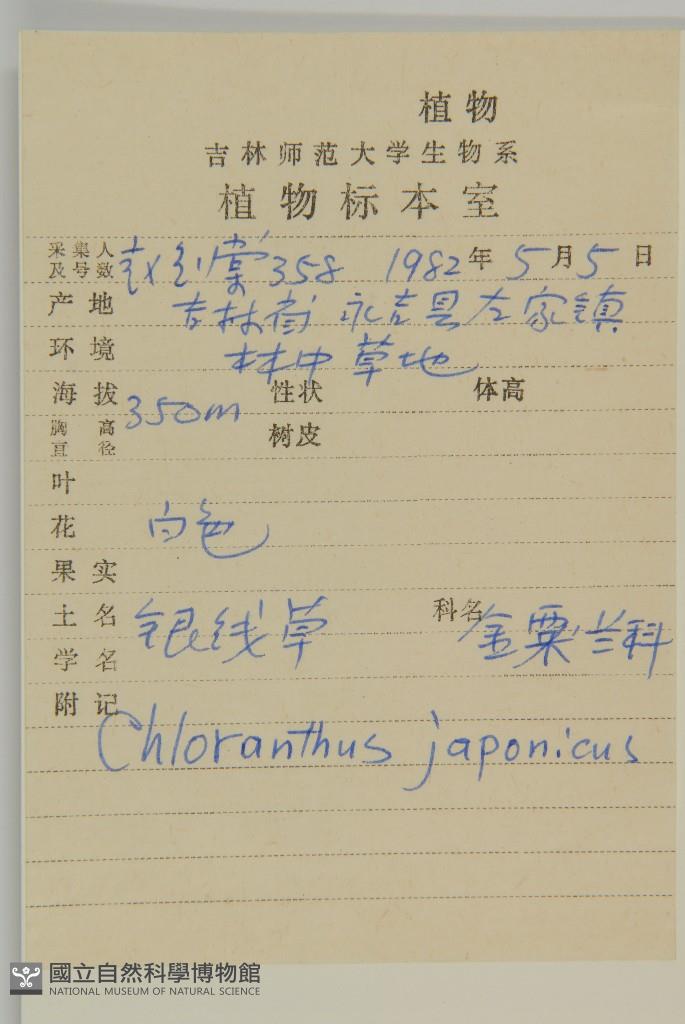 植物
吉林师范大学生物系
植物标本室
采集人及号数 赵 棠358 1982年5月5日
产地 吉林省 永吉县左家镇
环境 林中草地
海拔 350m 性状 体高
胸高直径 树皮
叶
花 白色
果实
土名 银线草 科名 金粟兰科
学名
附记
Chloranthus japonicus
國立自然科學博物館
NATIONAL MUSEUM OF NATURAL SCIENCE